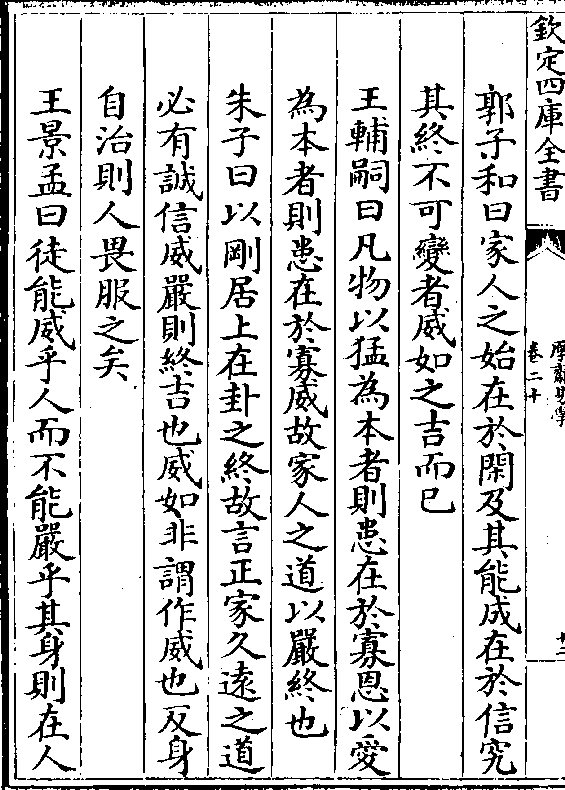 欽定四庫全書
厚齋易學
卷二十
十二
郭子和曰家人之始在於閑及其能成在於信究
其終不可變者威如之吉而已
王輔嗣曰凡物以猛為本者則患在於寡恩以愛
為本者則患在於寡威故家人之道以嚴終也
朱子曰以剛居上在卦之終故言正家久遠之道
必有誠信威嚴則終吉也威如非謂作威也反身
自治則人畏服之矣
王景孟曰徒能威乎人而不能嚴乎其身則在人